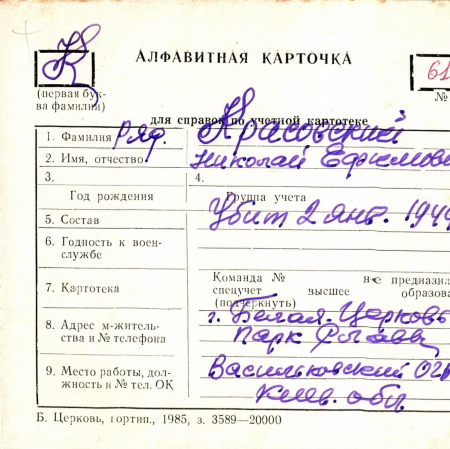 К АЛФАВИТНАЯ КАРТОЧКА 61
(первая бук-
ва фамилии) №
для справок по учетной картотеке
1. Фамилия Ряд. Красовский
2. Имя, отчество Николай Ефимови
3. 4.
Год рождения Группа учета
5. Состав Убит 2 янв. 1944
6. Годность к воен-
службе
Команда № не предназна
7. Картотека спецучет высшее образова
(подчеркнуть)
8. Адрес м-житель- г. Белая-Церковь
ства и № телефона Парк Славы
9. Место работы, дол- Васильковский
жность и № тел. ОК Киев. обл.
Б. Церковь, гортип., 1985, з. 3589—20000